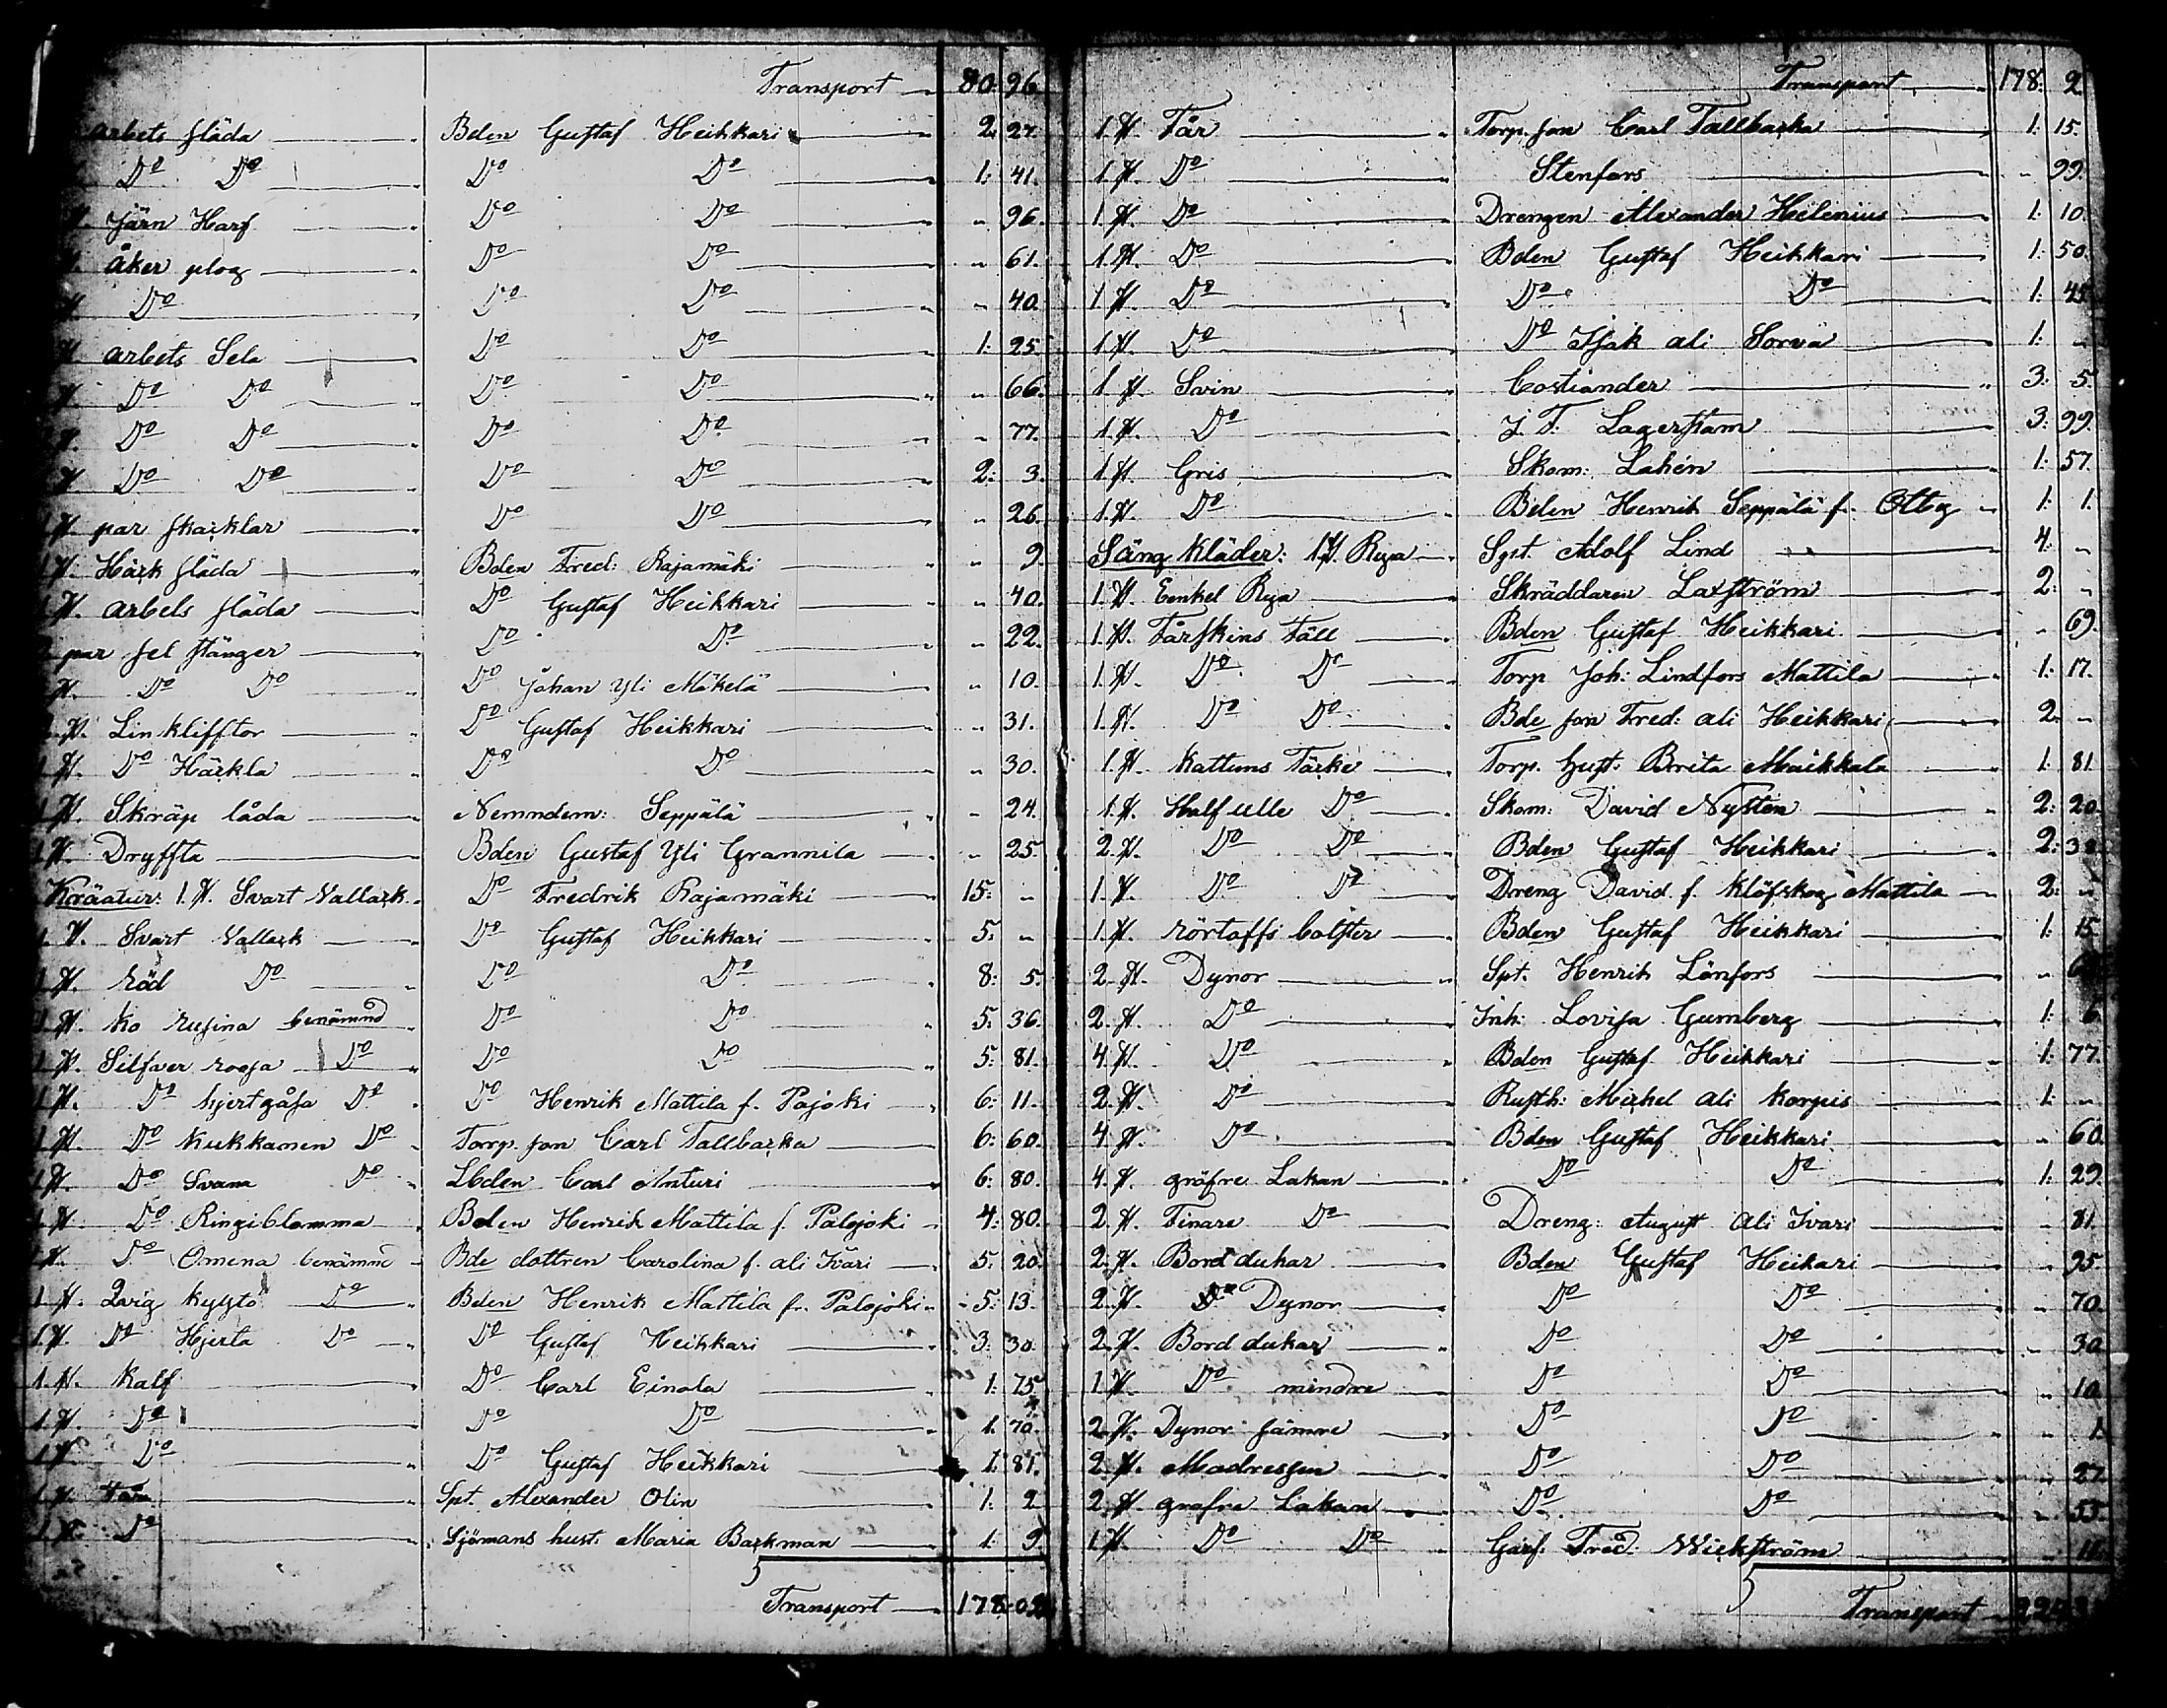 Transport 80: 96.
arbets släda Bden Gustaf Heikkari 2. 27.
Do Do Do Do 1: 41.
Järn Harf Do Do " 96.
Åker plog Do Do " 61.
Do Do Do " 40.
arbets Sela Do Do 1: 25.
Do Do Do Do " 66.
Do Do Do Do " 77.
Do Do Do Do 2: 3.
par skacklar Do Do " 26.
1 St. Häck släda Bden Fred: Rajamäki " 9.
1 St. arbets släda Do Gustaf Heikkari " 40.
par sel stänger Do Do " 22.
St. Do Do Do Johan Yli Mäkelä " 10.
1 St. Lin kliftor Do Gustaf Heikkari " 31.
1 St. Do Häckla Do Do " 30.
1 St. Skräp låda Nemndem: Seppälä " 24.
1 St. Dryffta Bden Gustaf Yli Grannila " 25.
Kräatur: 1. St. Svart Vallack Do Fredrik Rajamäki 15: "
1. St. Svart Vallack Do Gustaf Heikkari 5. "
1 St. Röd Do Do Do 8: 5.
1 St. Ko Rusina benämnd Do Do 5. 36.
1 St. Silfver rosa Do Do Do 5: 81.
1 St. Do hjertgåfa Do Do Henrik Mattila f. Pajoki 6: 11.
1 St. Do Kukkanen Do Torp. son Carl Tallbacka 6: 60.
1 St. Do Svana Do Lbden Carl Anturi 6: 80.
1 St. Do Ringiblomma Bden Henrik Mattila f. Palojoki 4: 80.
1 St. Do Omena benämnd Bde dottren Carolina f. ali Ivari 5. 20.
1 St. Qvig Kyytö Do Bden Henrik Mattila fr. Palojoki 5: 13.
1. St. Do Hjerta Do Do Gustaf Heikkari 3: 30.
1. St. Kalf Do Carl Einola 1: 75.
1. St. Do Do Do 1. 70.
1 St. Do Do Gustaf Heikkari 1: 81.
1 St. Får Spt. Alexander Olin 1: 2
1 St. Do Sjömans hust: Maria Backman 1: 9
Transport 178: 02
Transport 178: 2
1. St. Får Torp. son Carl Tallbacka 1: 15.
1. St. Do Stenfors " 99.
1. St. Do Drengen Alexander Helenius 1: 10.
1. St. Do Bden Gustaf Heikkari 1: 50.
1 St. Do Do Do 1: 45.
1 St. Do Do Isak ali Sorva 1: "
1 St. Svin Costiander 3: 5.
1. St. Do J. F. Lagerstam 3: 99.
1 St. Gris Skom: Lahén 1: 57.
1. St. Do Bden Henrik Seppälä f. 1: 1.
Säng Kläder: 1 St. Rya Spt. Adolf Lind 4: "
1. St. Eenkel Rya Skräddaren Laxström 2: "
1. St. Fårskins Fäll Bden Gustaf Heikkari " 69.
1. St. Do Do Torp Joh: Lindfors Mattila 1: 17.
1. St. Do Do Bde son Fred: ali Heikkari 2. "
1. St. Kattuns Täcke Torp. hust: Brita Maikkala 1. 81
1. St. Half ulle Do Skom: David Nysten 2: 20.
2. St. Do Do Bden Gustaf Heikkari 2: 38
1. St. Do Do Dreng David f. Klöfskog Mattila 2: "
1. St. rörtaffs bolster Bden Gustaf Heikkari 1: 15
2. St. Dynor Spt. Henrik Lönfors "
2. St. Do Inh: Lovisa Gumberg 1: 6
4. St. Do Bden Gustaf Heikkari 1: 77.
2. St. Do Rusth: Mickel ali Korpis 1: "
4. St. Do Bden Gustaf Heikkari " 60.
4. St. gröfre Lakan Do Do 1: 29.
2. St. Finare Do Dreng: August Ali Ivari " 81.
2. St. Bord dukar Bden Gustaf Heikari " 95.
2. St. Do Dynor Do Do " 70.
2 St. Bord dukar Do Do " 30
1. St. Do mindre Do Do " 10
2. St. Dynor sämre Do Do " 1.
2 St. Madressen Do Do " 27.
2. St. grofre Lakan Do Do " 55.
1 St. Do Do Garf. Fred. Wickström
Transport